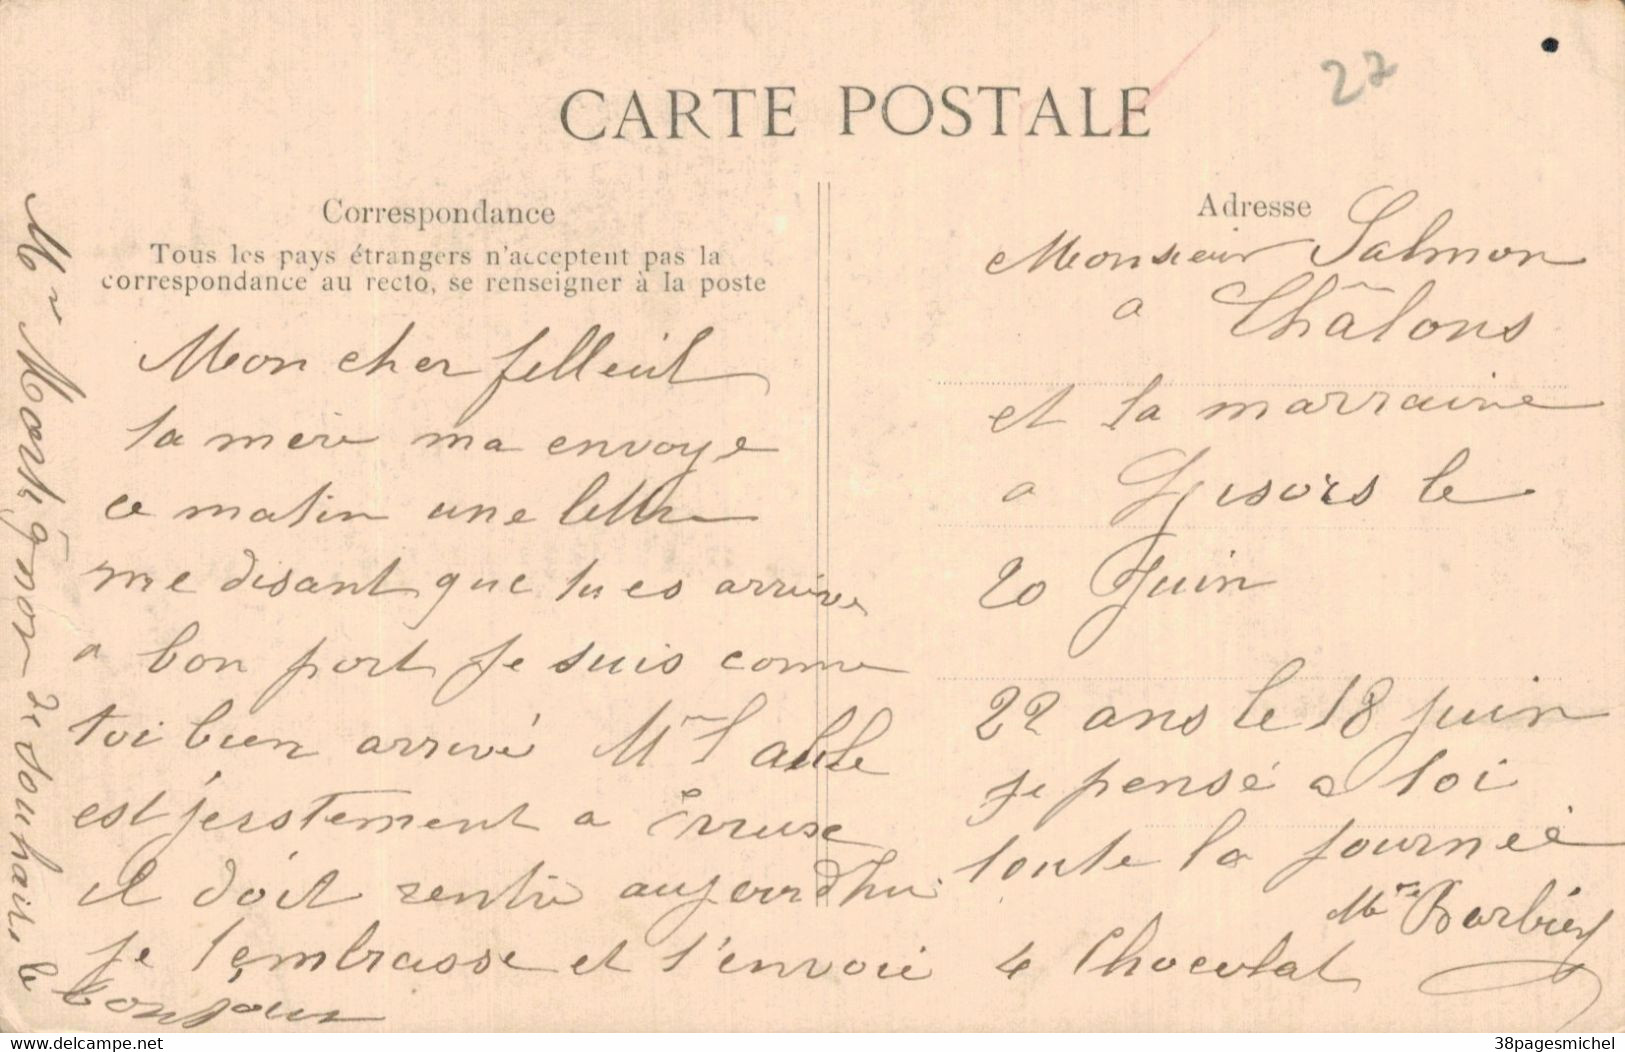 CARTE POSTALE
27
Correspondance
Tous les pays étrangers n'acceptent pas la
correspondance au recto, se renseigner à la poste
Mon cher felleul
ta mère ma envoye
ce matin une lettre
me disant que tu es arrivé
a bon port je suis comme
toi bien arrivé Mr l'abbé
est justement a
il doit rentré aujourdhui
je t'embrasse et t'envoie
Mr Montignon te souhaite le
bonjour
Adresse
Monsieur Salmon
a Châlons
et ta marraine
a Gisors le
20 Juin
22 ans le 18 juin
je pensé a toi
toute la journée
Mme Barbier
le Chocolat
delcampe.net
38pagesmichel